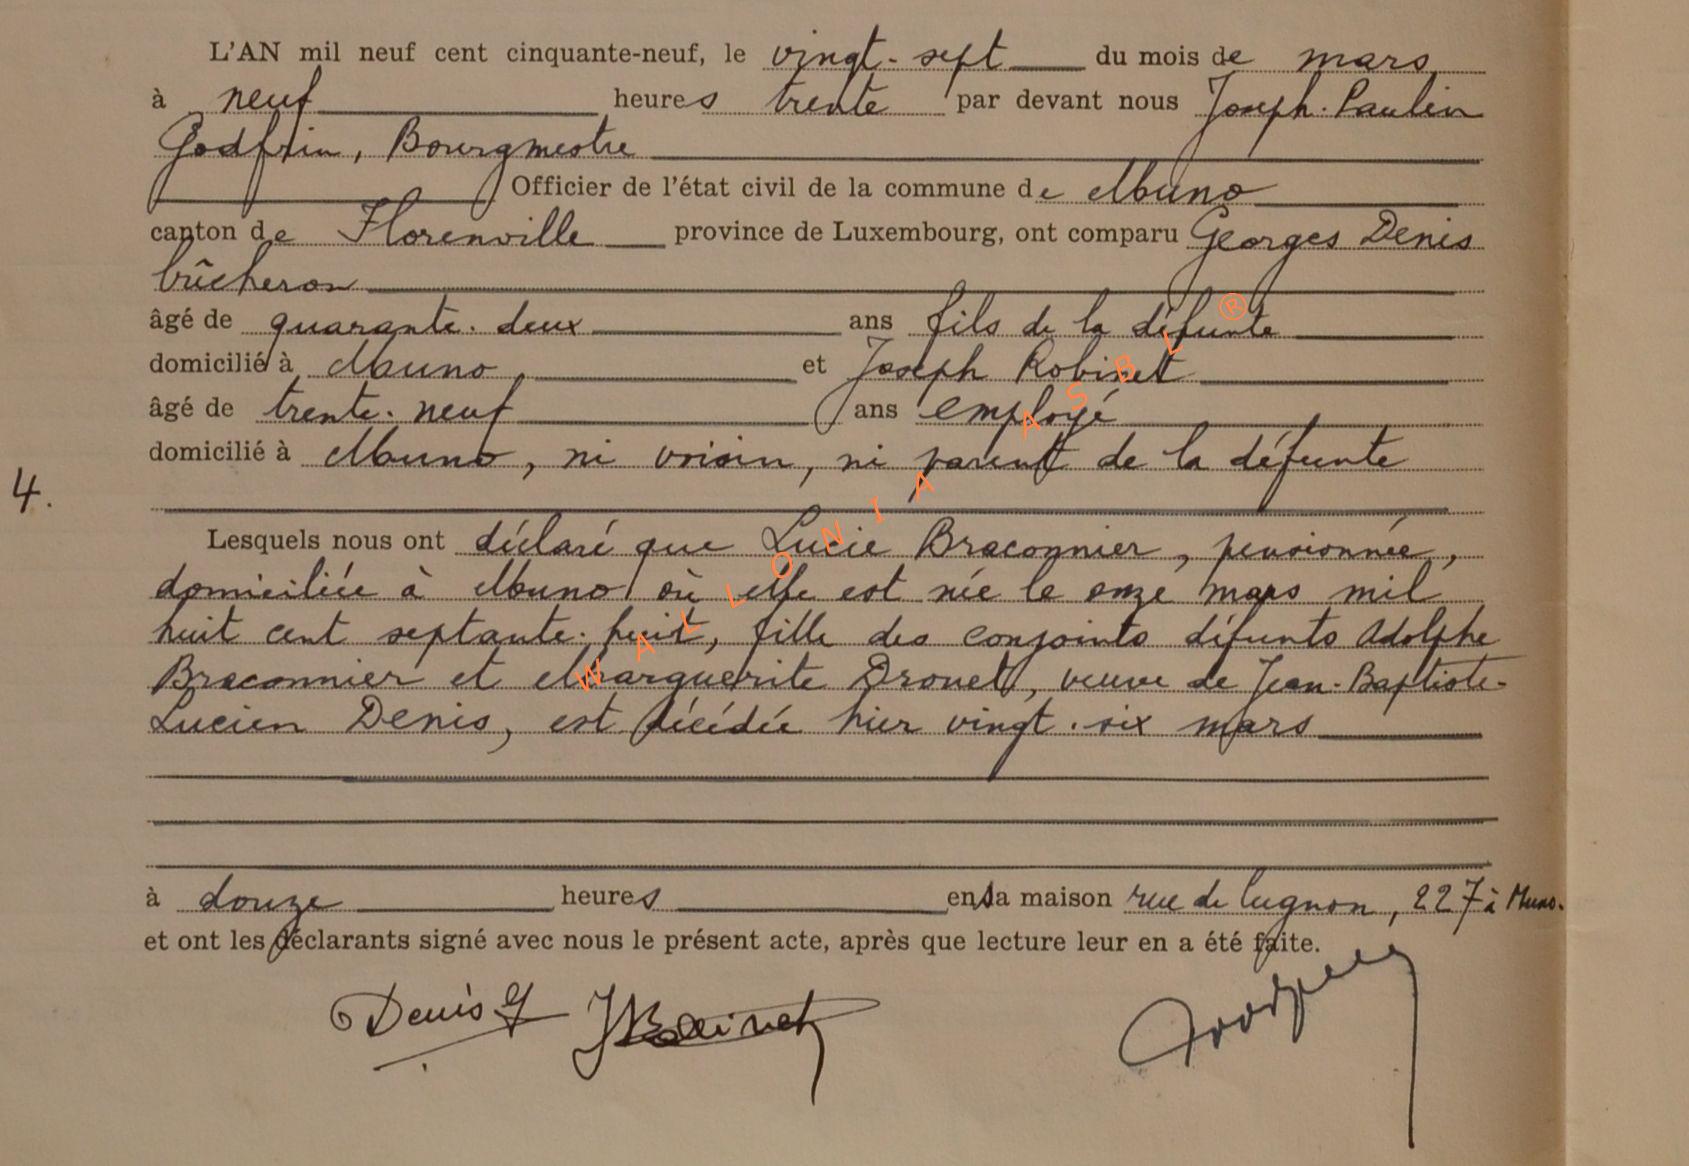 L'AN mil neuf cent cinquante-neuf, le vingt-sept du mois de mars
à neuf heures trente par devant nous Joseph-Paulin
Godfrin, Bourgmestre
Officier de l'état civil de la commune de Muno
canton de Florenville province de Luxembourg, ont comparu Georges Denis
bûcheron
âgé de quarante-deux ans fils de la défunte
domicilié à Muno et Joseph Robinet
âgé de trente-neuf ans employé
domicilié à Muno, ni voisin, ni parent de la défunte
4.
Lesquels nous ont déclaré que Lucie Braconnier, pensionnée,
domiciliée à Muno où elle est née le onze mars mil
huit cent septante-huit, fille des conjoints défunts Adolphe
Braconnier et Marguerite Drouet, veuve de Jean-Baptiste-
Lucien Denis, est décédée hier vingt-six mars
à douze heures en sa maison rue de Lugnon, 227 à Muno.
et ont les déclarants signé avec nous le présent acte, après que lecture leur en a été faite.
Denis G JRobinet Godfrin
WALLONIA ASBL ®